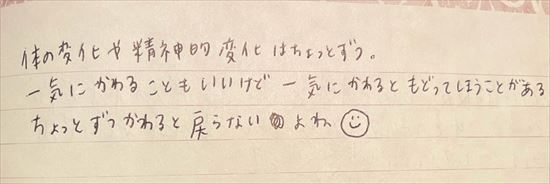 体の変化や精神的変化はちょっとずつ。
一気にかわることもいいけど一気にかわるともどってしまうことがある
ちょっとずつかわると戻らないよね